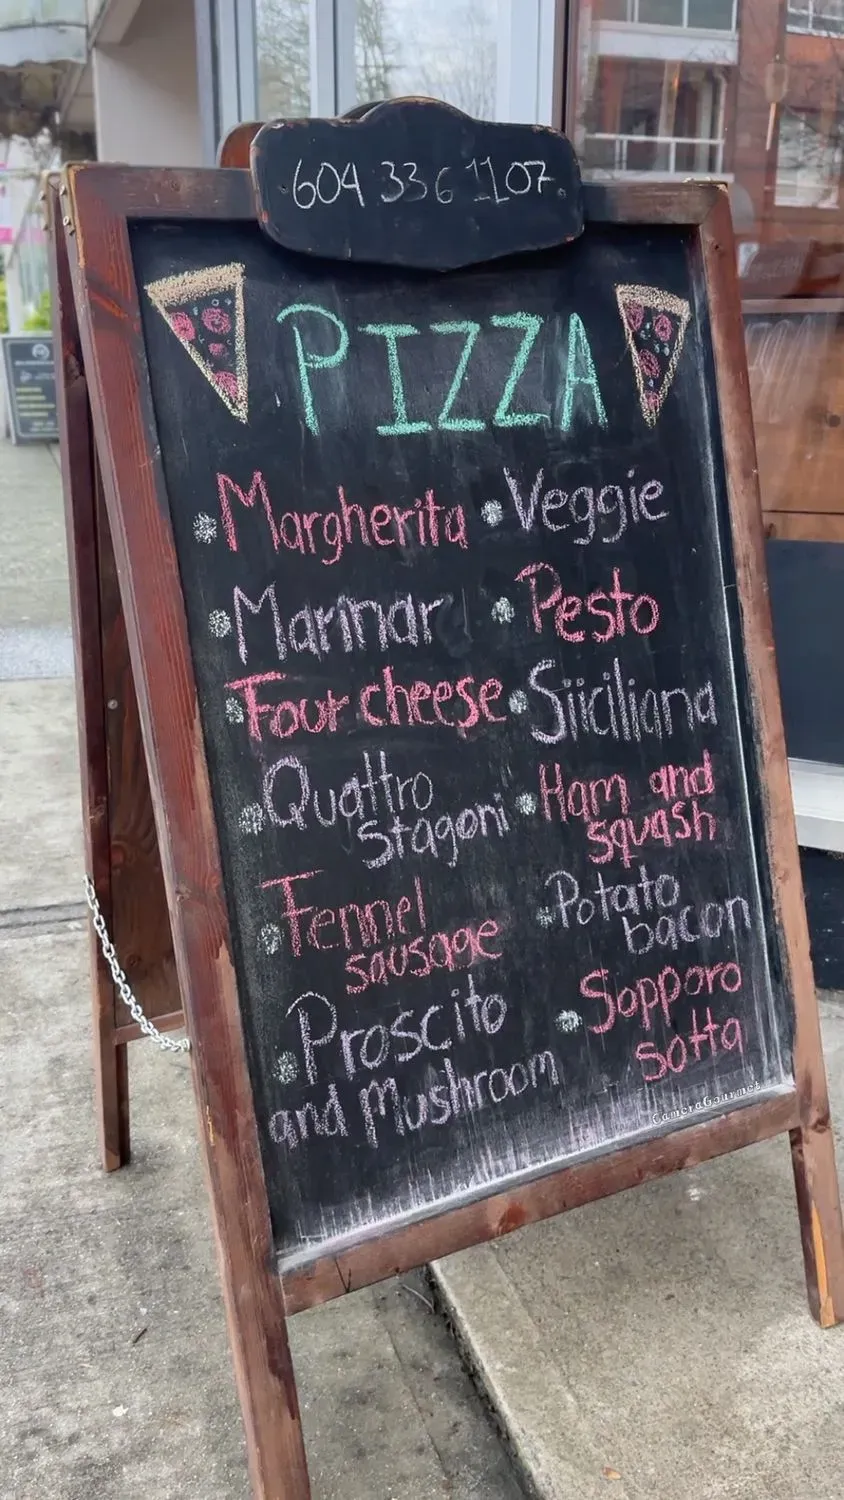 604 336 1107.
PIZZA
Margherita
Veggie
Marinar
Pesto
Four cheese
Siiciliana
Quattro
stagoni
Ham and
squash
Fennel
sausage
Potato
bacon
Proscito
and Mushroom
Sopporo
sotta
CameraGourmet